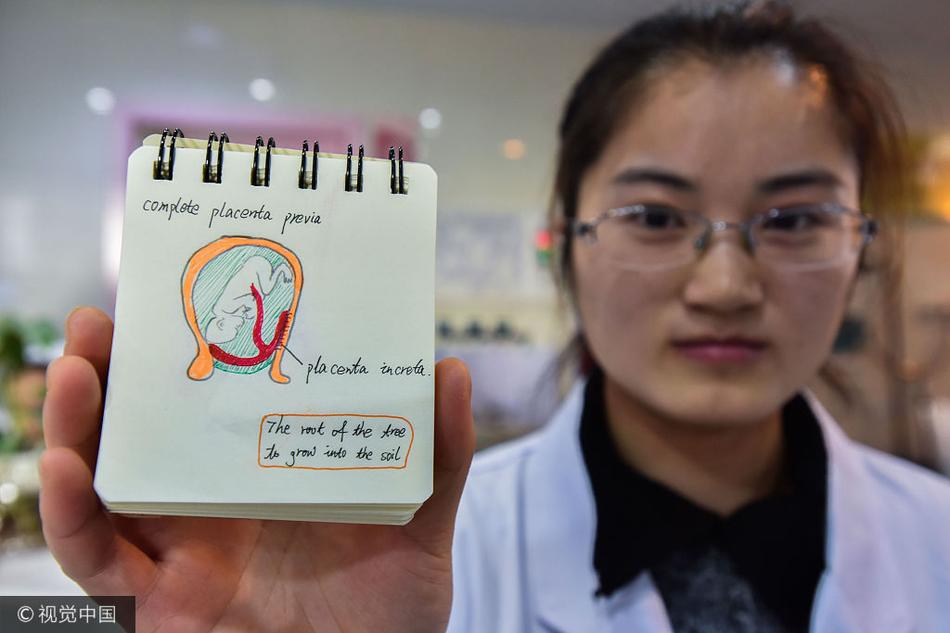 complete placenta previa
placenta increta.
The root of the tree
to grow into the soil
© 视觉中国